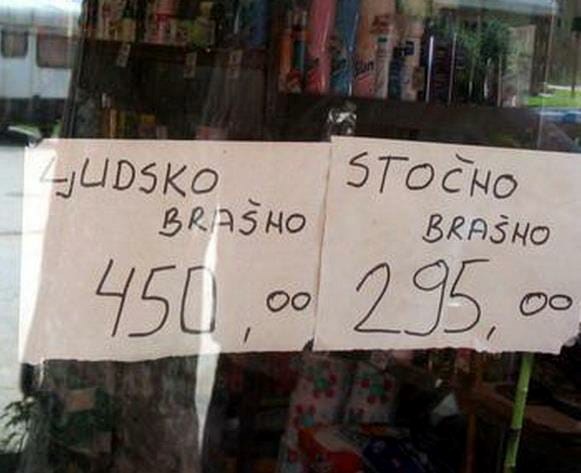 LJUDSKO
BRAŠNO
450,00
STOČNO
BRAŠNO
295,00